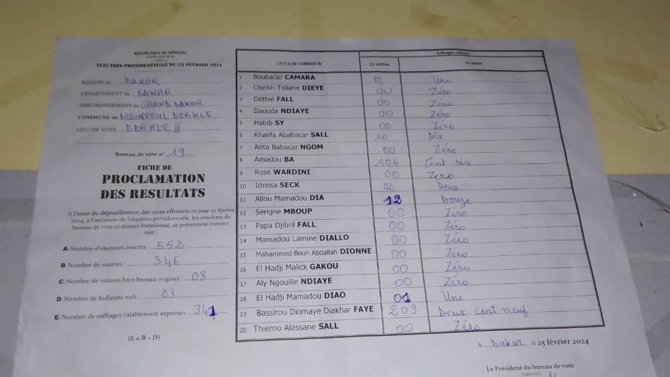 REPUBLIQUE DU SENEGAL
ELECTION PRESIDENTIELLE DU 25 FÉVRIER 2024
REGION DE DAKAR
DÉPARTEMENT DE DAKAR
ARRONDISSEMENT DE GRAND DAKAR
COMMUNE DE DIEUPPEUL DERKLE
LIEU DE VOTE DERKLE II
Bureau de vote n° 19
FICHE DE
PROCLAMATION
DES RESULTATS
A l'issue du dépouillement des votes effectués ce jour 25 février
2024, à l'occasion de l'élection présidentielle, les résultats du
bureau de vote ci-dessus mentionné, se présentent comme
suit :
A-Nombre d'électeurs inscrits 552
B-Nombre de votants 346
C-Nombre de votants hors bureau originel 08
D-Nombre de bulletins nuls 03
E-Nombre de suffrages valablement exprimés 341
(E = B - D)
Suffrages obtenus
LISTES DE CANDIDATS En chiffres En lettres
1 Boubacar CAMARA 01 Une
2 Cheikh Tidiane DIEYE 00 Zéro
3 Déthié FALL 00 Zéro
4 Daouda NDIAYE 00 Zéro
5 Habib SY 00 Zéro
6 Khalifa Ababacar SALL 10 Dix
7 Anta Babacar NGOM 00 Zéro
8 Amadou BA 106 Cent six
9 Rose WARDINI 00 Zero
10 Idrissa SECK 02 Deux
11 Aliou Mamadou DIA 12 Douze
12 Serigne MBOUP 00 Zéro
13 Papa Djibril FALL 00 Zéro
14 Mamadou Lamine DIALLO 00 Zéro
15 Mahammed Boun Abdallah DIONNE 00 Zéro
16 El Hadji Malick GAKOU 00 Zéro
17 Aly Ngouille NDIAYE 00 Zéro
18 El Hadji Mamadou DIAO 01 Une
19 Bassirou Diomaye Diakhar FAYE 209 Deux cent neuf
20 Thierno Alassane SALL 00 Zéro
A Dakar le 25 février 2024
Le Président du bureau de vote